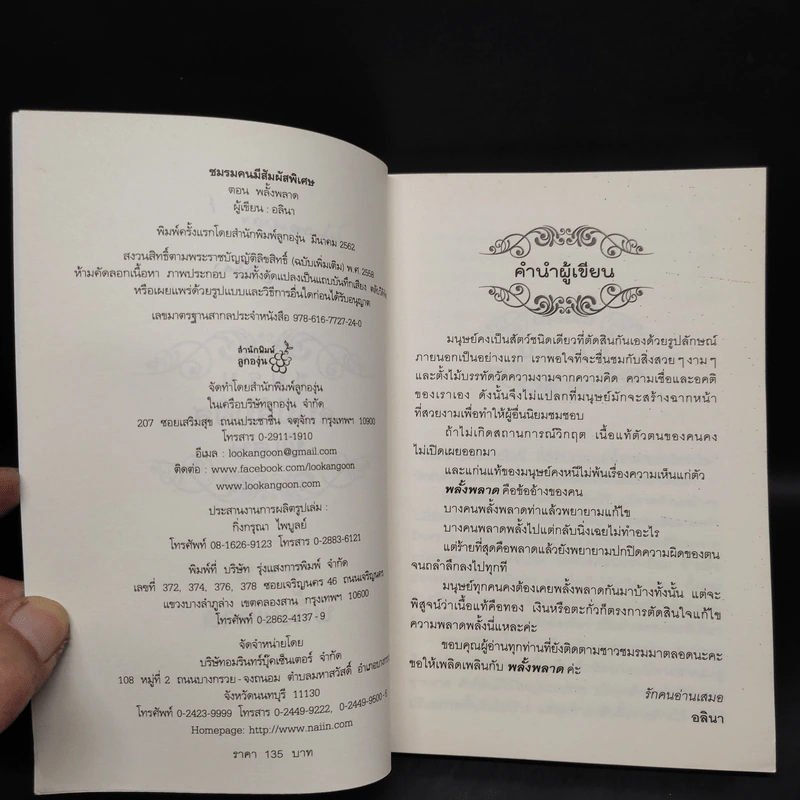 ชมรมคนมีสัมผัสพิเศษ
ตอน พลั้งพลาด
ผู้เขียน : อลินา
พิมพ์ครั้งแรกโดยสำนักพิมพ์ลูกองุ่น มีนาคม 2562
สงวนสิทธิ์ตามพระราชบัญญัติลิขสิทธิ์ (ฉบับเพิ่มเติม) พ.ศ. 2558
ห้ามคัดลอกเนื้อหา ภาพประกอบ รวมทั้งดัดแปลงเป็นแถบบันทึกเสียง
หรือเผยแพร่ด้วยรูปแบบและวิธีการอื่นใดก่อนได้รับอนุญาต
เลขมาตรฐานสากลประจำหนังสือ 978-616-7727-24-0
สำนักพิมพ์
ลูกองุ่น
จัดทำโดยสำนักพิมพ์ลูกองุ่น
ในเครือบริษัทลูกองุ่น จำกัด
207 ซอยเสริมสุข ถนนประชาชื่น จตุจักร กรุงเทพฯ 10900
โทรสาร 0-2911-1910
อีเมล : lookangoon@gmail.com
ติดต่อ : www.facebook.com/lookangoon
www.lookangoon.com
ประสานงานการผลิตรูปเล่ม :
กิ่งกรุณา ไพบูลย์
โทรศัพท์ 08-1626-9123 โทรสาร 0-2883-6121
พิมพ์ที่ บริษัท รุ่งแสงการพิมพ์ จำกัด
เลขที่ 372, 374, 376, 378 ซอยเจริญนคร 46 ถนนเจริญนคร
แขวงบางลำภูล่าง เขตคลองสาน กรุงเทพฯ 10600
โทรศัพท์ 0-2862-4137-9
จัดจำหน่ายโดย
บริษัทอมรินทร์บุ๊คเซ็นเตอร์ จำกัด
108 หมู่ที่ 2 ถนนบางกรวย-จงถนอม ตำบลมหาสวัสดิ์
จังหวัดนนทบุรี 11130
โทรศัพท์ 0-2423-9999 โทรสาร 0-2449-9222, 0-2449-9500-6
Homepage: http://www.naiin.com
ราคา 135 บาท
คำนำผู้เขียน
มนุษย์คงเป็นสัตว์ชนิดเดียวที่ตัดสินกันเองด้วยรูปลักษณ์
ภายนอกเป็นอย่างแรก เราพอใจที่จะชื่นชมกับสิ่งสวยๆงามๆ
และตั้งไม้บรรทัดวัดความงามจากความคิด ความเชื่อและอคติ
ของเราเอง ดังนั้นจึงไม่แปลกที่มนุษย์มักจะสร้างฉากหน้า
ที่สวยงามเพื่อทำให้ผู้อื่นนิยมชมชอบ
ถ้าไม่เกิดสถานการณ์วิกฤต เนื้อแท้ตัวตนของคนคง
ไม่เปิดเผยออกมา
และแก่นแท้ของมนุษย์คงหนีไม่พ้นเรื่องความเห็นแก่ตัว
พลั้งพลาด คือข้ออ้างของคน
บางคนพลั้งพลาดทำแล้วพยายามแก้ไข
บางคนพลาดพลั้งไปแต่กลับนิ่งเฉยไม่ทำอะไร
แต่ร้ายที่สุดคือพลาดแล้วยังพยายามปกปิดความผิดของตน
จนถลำลึกลงไปทุกที
มนุษย์ทุกคนคงต้องเคยพลั้งพลาดกันมาบ้างทั้งนั้น แต่จะ
พิสูจน์ว่าเนื้อแท้คือทอง เงินหรือตะกั่วก็ตรงการตัดสินใจแก้ไข
ความพลาดพลั้งนี่แหละค่ะ
ขอบคุณผู้อ่านทุกท่านที่ยังติดตามชาวชมรมมาตลอดนะคะ
ขอให้เพลิดเพลินกับ พลั้งพลาด ค่ะ
รักคนอ่านเสมอ
อลินา